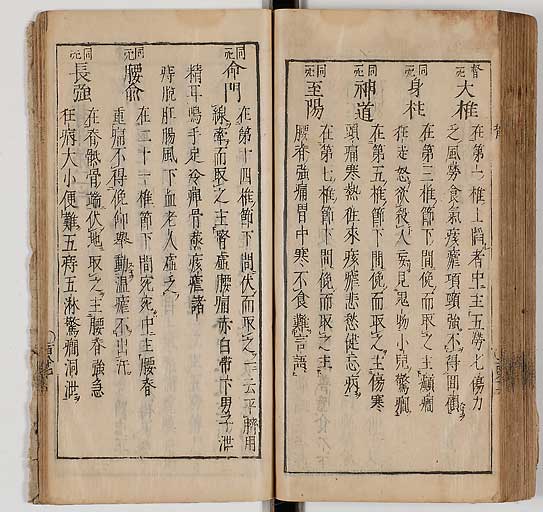 督
大椎
在第一椎上陷者中主五勞七傷力
乏風勞食氣痎瘧項頸強不得回顧
同
身柱
在第三椎節下間俛而取之主癲癇
狂走怒欲殺人妄見鬼物小兒驚癇
同
神道
在第五椎節下間俛而取之主傷寒
頭痛寒熱往來痎瘧悲愁健忘病
同
至陽
在第七椎節下間俛而取之主
腰脊強痛胃中寒不食言語
同
命門
在第十四椎節下間伏而取之云平臍用
線牽而取之主腎虛腰痛赤白帶下男子泄
精耳鳴手足冷痺骨蒸痎瘧諸
痔脫肛腸風下血老人虛之
同
腰俞
在二十一椎節下間主腰脊
重痛不得俛仰舉動溫瘧不出汗
同
長強
在脊骶骨端伏地取之主腰脊強急
狂病大小便難五痔五淋驚癇洞泄